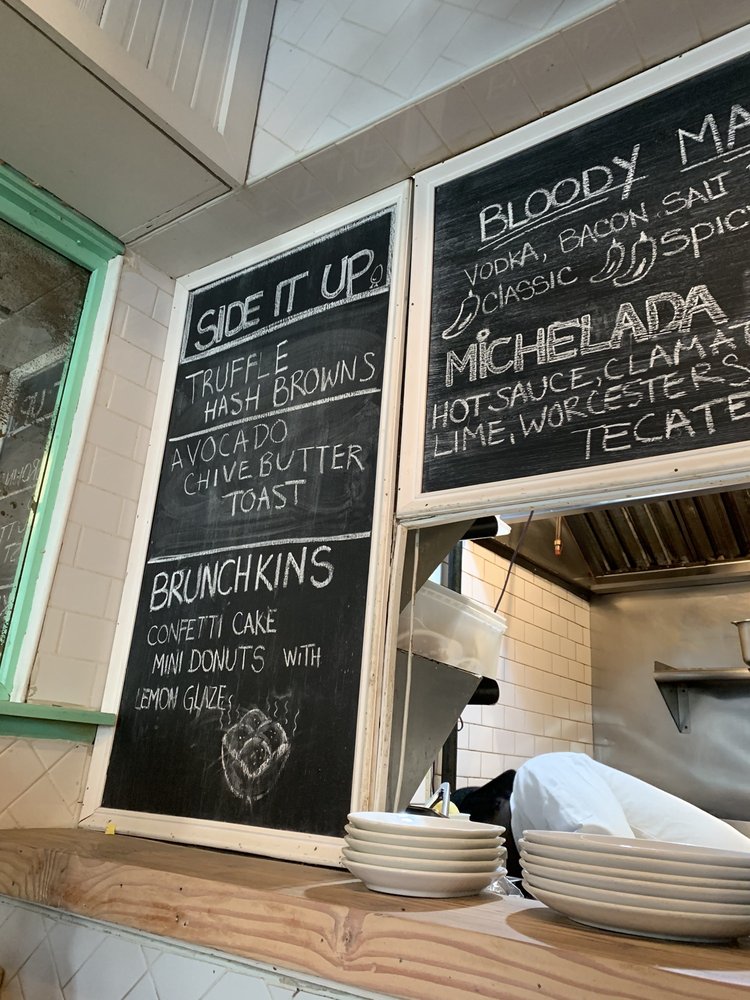 SIDE IT UP
TRUFFLE
HASH BROWNS
AVOCADO
CHIVE BUTTER
TOAST
BRUNCHKINS
CONFETTI CAKE
MINI DONUTS WITH
LEMON GLAZE
BLOODY MA
VODKA, BACON SALT
CLASSIC SPIC
MICHELADA
HOT SAUCE, CLAMAT
LIME, WORCESTERS
TECATE